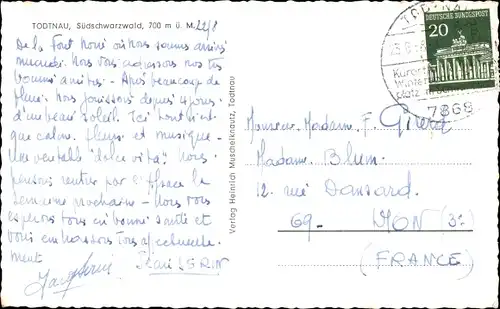 TODTNAU, Südschwarzwald, 700 m ü. M. 22/8
De la Forêt Noire où nous sommes arrivés
mercredi. Nous vous adressons nos très
bonnes amitiés - Après beaucoup de
pluie. Nous jouissons depuis 4 jours
d'un beau soleil. Ici tout n'est
que calme. fleurs et musique -
Une véritable "dolce vita". Nous
pensons rentrer par l'Alsace la
semaine prochaine - Nous vous
espérons tous en bonne santé et
vous embrassons tous affectueuse
ment
Verlag Heinrich Muschelknautz, Todtnau
TODTNAU
DEUTSCHE BUNDESPOST
20
Kurort
Winter
platz
7868
Monsieur. Madame F. Girerd
Madame Blum.
12. rue Dansard.
69 - LYON (3e)
(FRANCE)